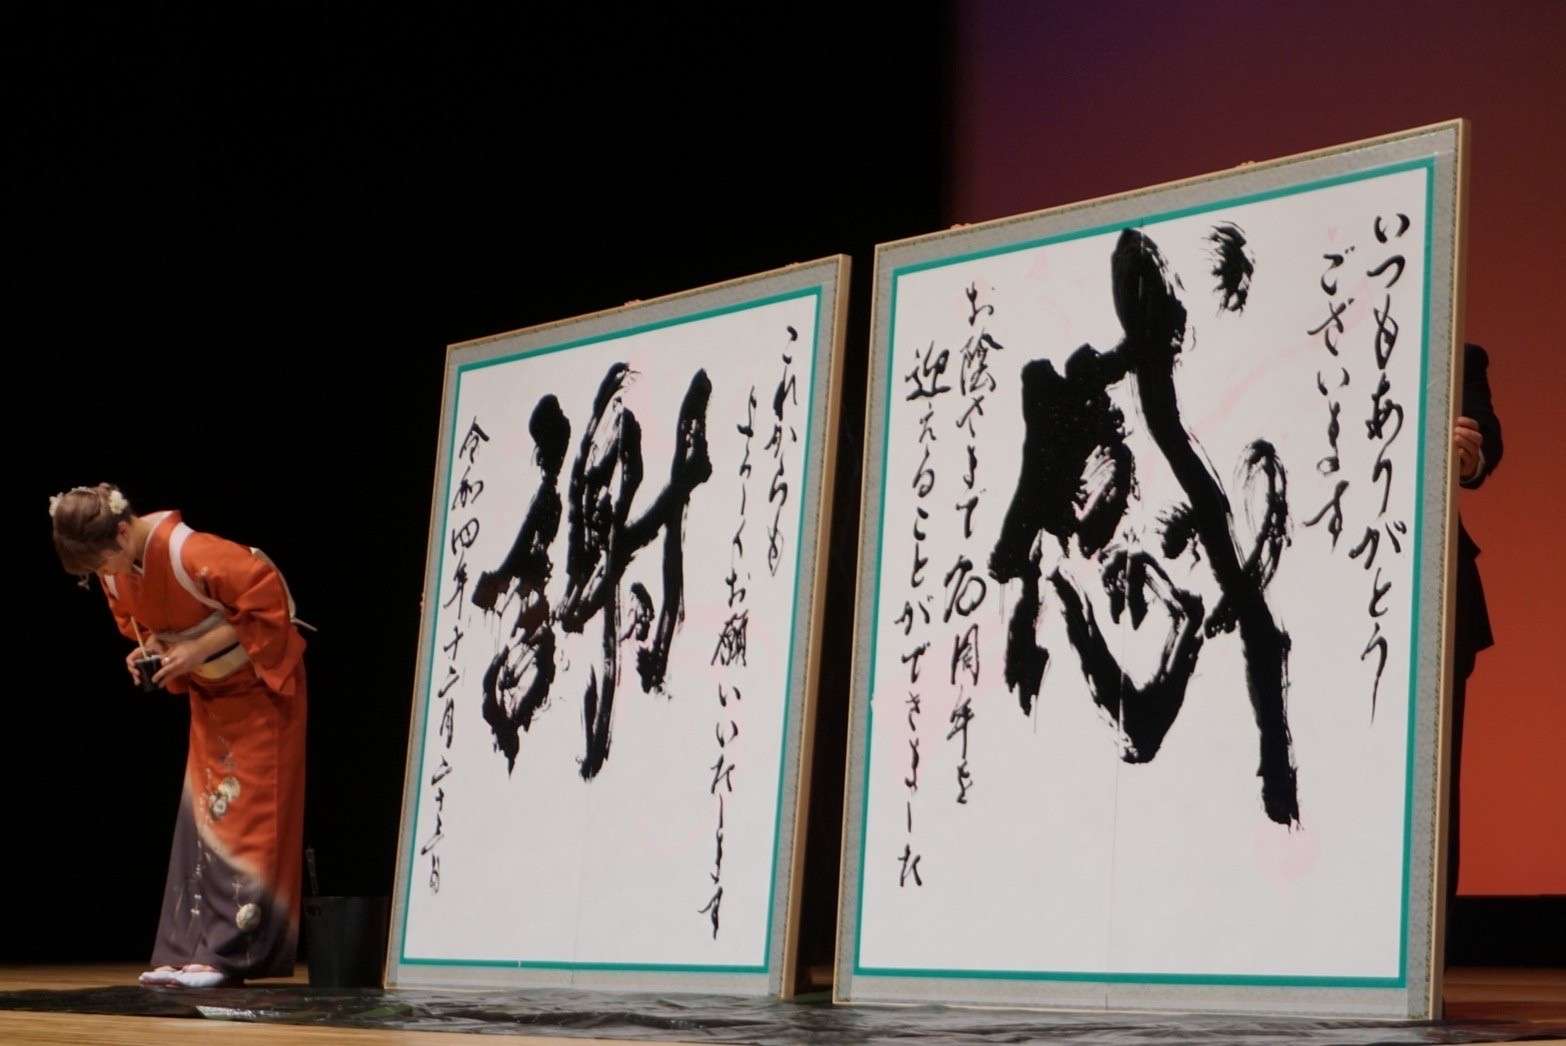 いつもありがとう
ございます
感
お陰さまで周年を
迎えることができました
これからも
よろしくお願いいたします
謝
令和四年十二月二十日